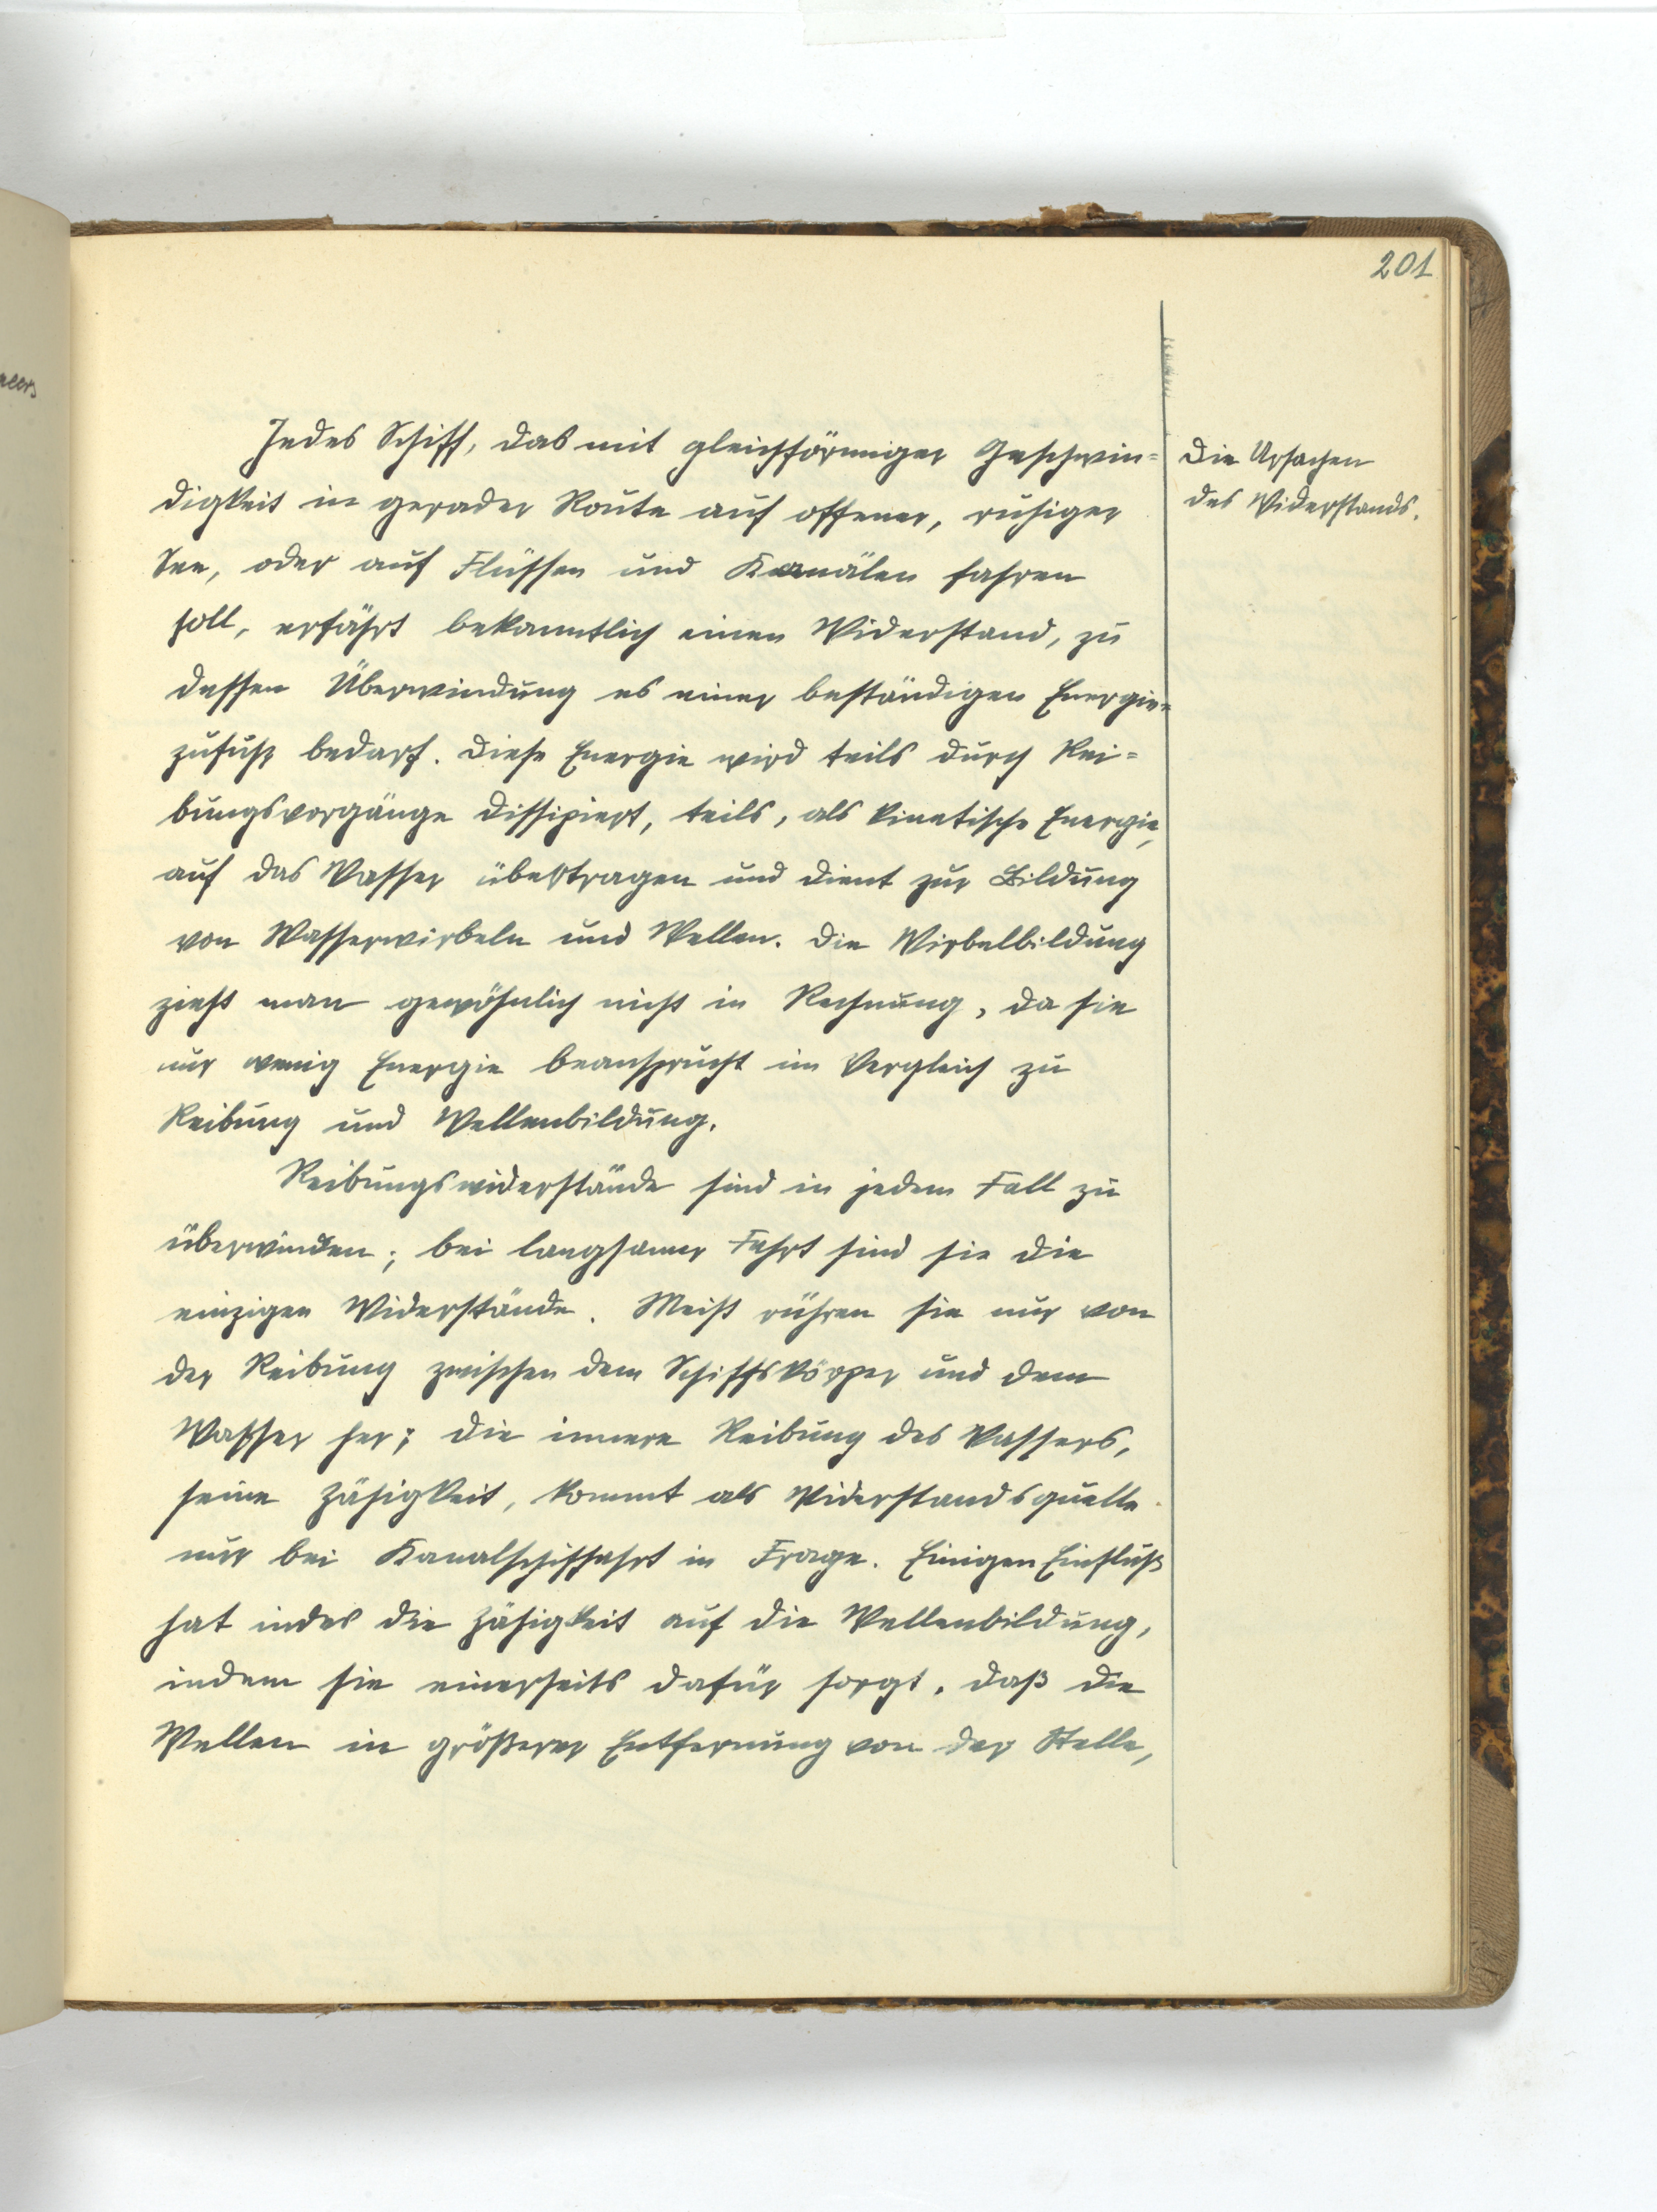 201
Jedes Schiff, das mit gleichförmiger Geschwin=
digkeit in gerader Route auf offener, ruhiger
See, oder auf Flüssen und Kanälen fahren
soll, erfährt bekanntlich einen Widerstand, zu
dessen Überwindung es einer beständigen Energie=
zufuhr bedarf. Diese Energie wird teils durch Rei=
bungsvorgänge dissipiert, teils, als kinetische Energie,
auf das Wasser übertragen und dient zur Bildung
von Wasserwirbeln und Wellen. Die Wirbelbildung
zieht man gewöhnlich nicht in Rechnung, da sie
nur wenig Energie beansprucht im Vergleich zu
Reibung und Wellenbildung.
Reibungswiderstände sind in jedem Fall zu
überwinden; bei langsamer Fahrt sind sie die
einzigen Widerstände. Meist rühren sie nur von
der Reibung zwischen dem Schiffskörper und dem
Wasser her; die innere Reibung des Wassers,
seine Zähigkeit, kommt als Widerstandsquelle
nur bei Kanalschiffahrt in Frage. Einigen Einfluß
hat indes die Zähigkeit auf die Wellenbildung,
indem sie einerseits dafür sorgt, daß die
Wellen in größerer Entfernung von der Stelle,
Die Ursachen
des Widerstands.